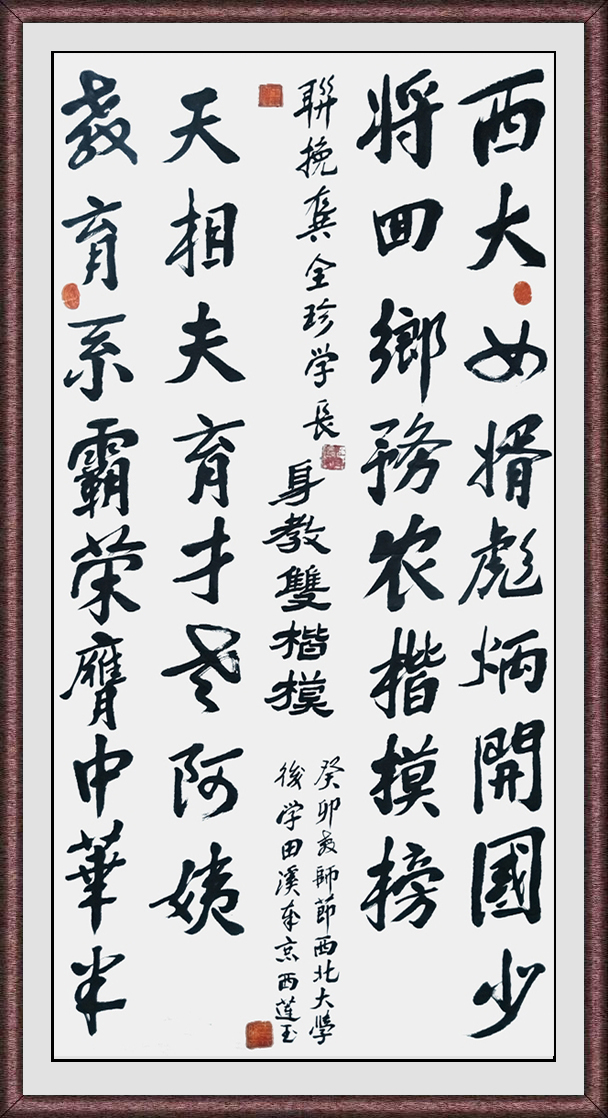 西大女婿彪炳開國少
将囬鄉務农楷模榜
聯挽龚全珍学長
身教雙楷模
癸卯教師節西北大學
後学田溪奉京西莲玉
天相夫育才老阿姨
教育系霸荣膺中華半